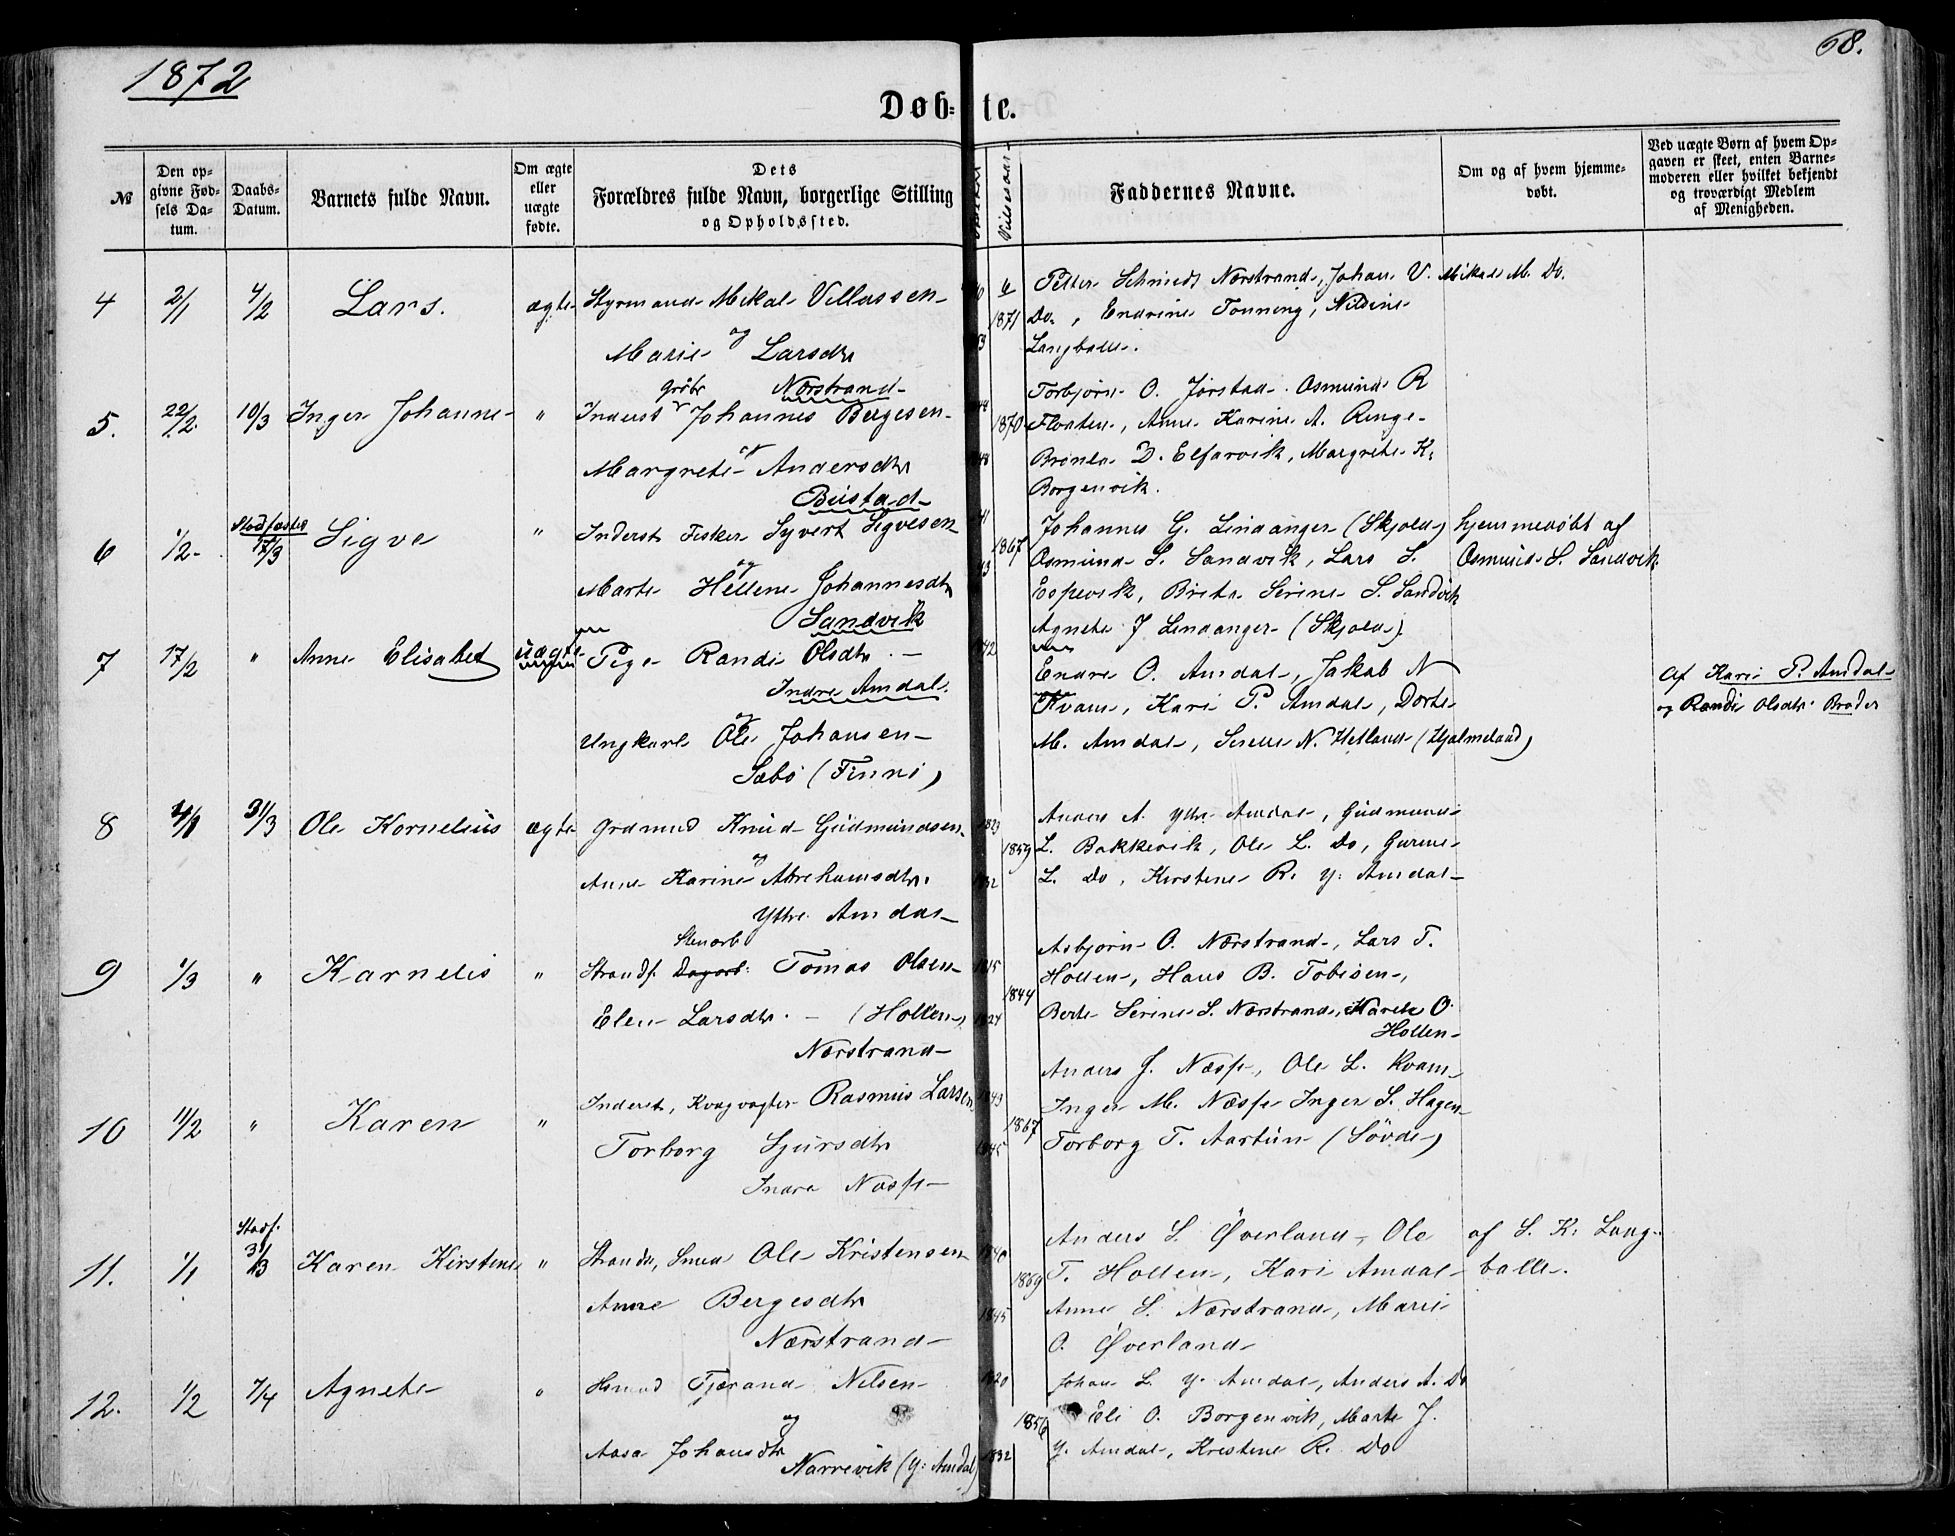 1872
68.
Døb= te.
№
Den op-
givne Fød-
sels Da-
tum.
Daabs-
Datum.
Barnets fulde Navn.
Om ægte
eller
uægte
fødte.
Dets
Forældres fulde Navn, borgerlige Stilling
og Opholdssted.
Faddernes Navne.
Om og af hvem hjemme-
døbt.
Ved uægte Børn af hvem Op-
gaven er skeet, enten Barne-
moderen eller hvilket bekjendt
og troværdigt Medlem
af Menigheden.
4 2/1 4/2 Lars. ægte Styrmand Mikal Villassen
og
Marie Larsdtr
Nærstrand
6
1871
Petter Schmidt Nærstrand, Johan V. Mikal M. Do.
Do., Endrine Tonning, Nildine
Langballe.
5. 22/2 10/3 Inger Johanne " Inderst Johannes Bergesen
og
Margrete Andersdtr
Bustad
1870
Torbjörn O. Jørstad. Osmund R
Floaten, Anne Karine A. Ringe
D. Elfarvik, Margrete K.
Borgenvik.
6 1/2 Stadfæstet 17/3 Sigve " Inderst Fisker Syvert Sigvesen
og
Marte Hellene Johannesdtr
Sandvik
1867
Johannes G. Lindanger (Skjold)
Osmund S. Sandvik, Lars S.
Espevik, Brita Serine S. Sandvik
Agnete J Lindanger (Skjold)
hjemmedöbt af
Osmund S. Sandvik
7 17/2 " Anne Elisabet uægte Pige Randi Olsdtr. —
Indre Amdal.
og
Ungkarl Ole Johansen
Sæbö (Finnö)
1842
Endre O. Amdal, Jakob N
Kvam, Kari P. Amdal, Dorte
M. Amdal, N. Hetland (Hjelmeland)
Af Kari P. Amdal
og Randi Olsdtr. Broder
8 31/3 Ole Kornelius ægte Grdmnd Knud Gudmundsen
og
Anne Karine Abrehamsdtr.
Ytre Amdal
1823
1859
1832
Anders A. Ytre Amdal, Gudmund
L. Bakkevik, Ole L. Do, Gurine
L. Do, Kirstine R. Y: Amdal
9 1/3 " Karnelis "
Stenarb
Strands. Tomas Olsen
Elen Larsdtr. — (Hollen)
Nærstrand
1815
1844
1824
Asbjörn O. Nærstrand, Lars T.
Hollen, Hans B. Tobisen,
Berte Serine S. Nærstrand, Karete O.
Hollen
10 11/2 " Karen " Inderst, Kvægvogter Rasmus Larsen
Torborg Sjursdtr
Indre Næsse
1843
1867
1845
Anders J. Næsse, Ole L. Kvam
Inger M. Næsse Inger S. Hagen
Torborg T. Aartun (Sövde)
11. 1/1 Stadf. 31/3 Karen Kirstine " Strands, Smed Ole Kristensen
Anne Bergesdtr
Nærstrand
1840
1869
1845
Anders S. Øverland, Ole
T. Hollen, Kari Amdal
Anne S. Nærstrand, Marie
O. Øverland
af S. K. Lang-
balle.
12. 1/2 7/4 Agnete " Hsmnd Tjerand Nilsen
og
Aasa Johansdtr
Narrevik (Y: Amdal)
1820
1856
1832
Johan L. Y. Amdal, Anders A. Do
Eli O. Borgenvik, Marte J.
Y. Amdal, Kristene R. Do